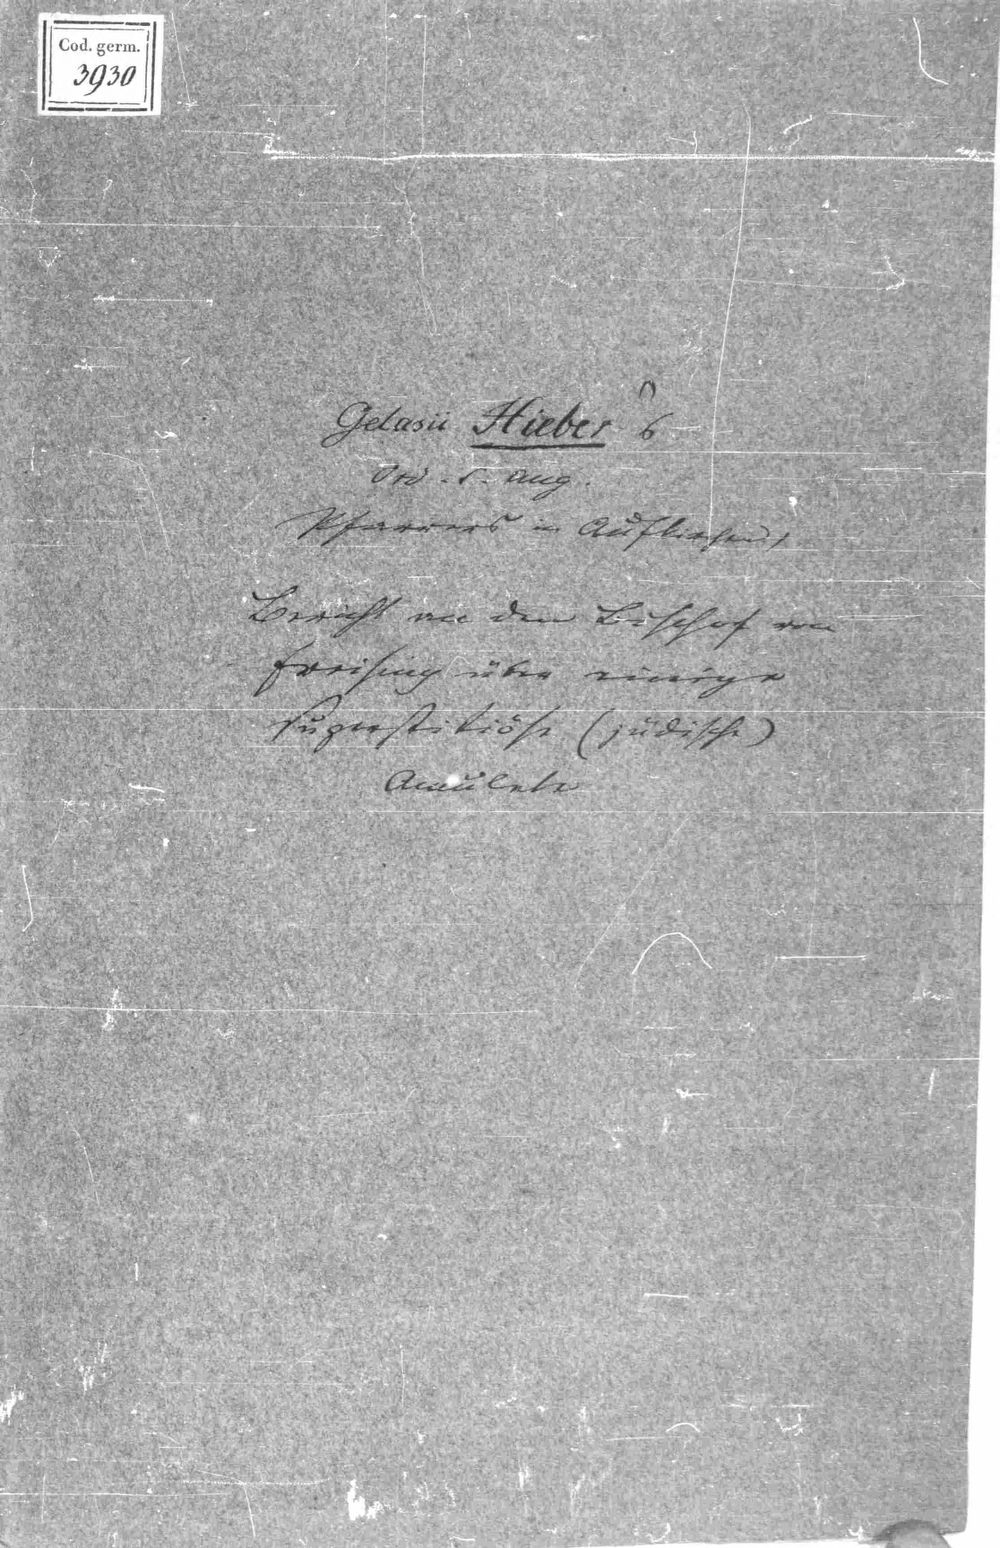 Cod. germ.
3930
Gelasii Hieber
Ord. S. Aug.
Pfarrers in Aufkirchen,
Bericht an den Bischof von
Freising über einige
superstitiöse (jüdische)
Amulete